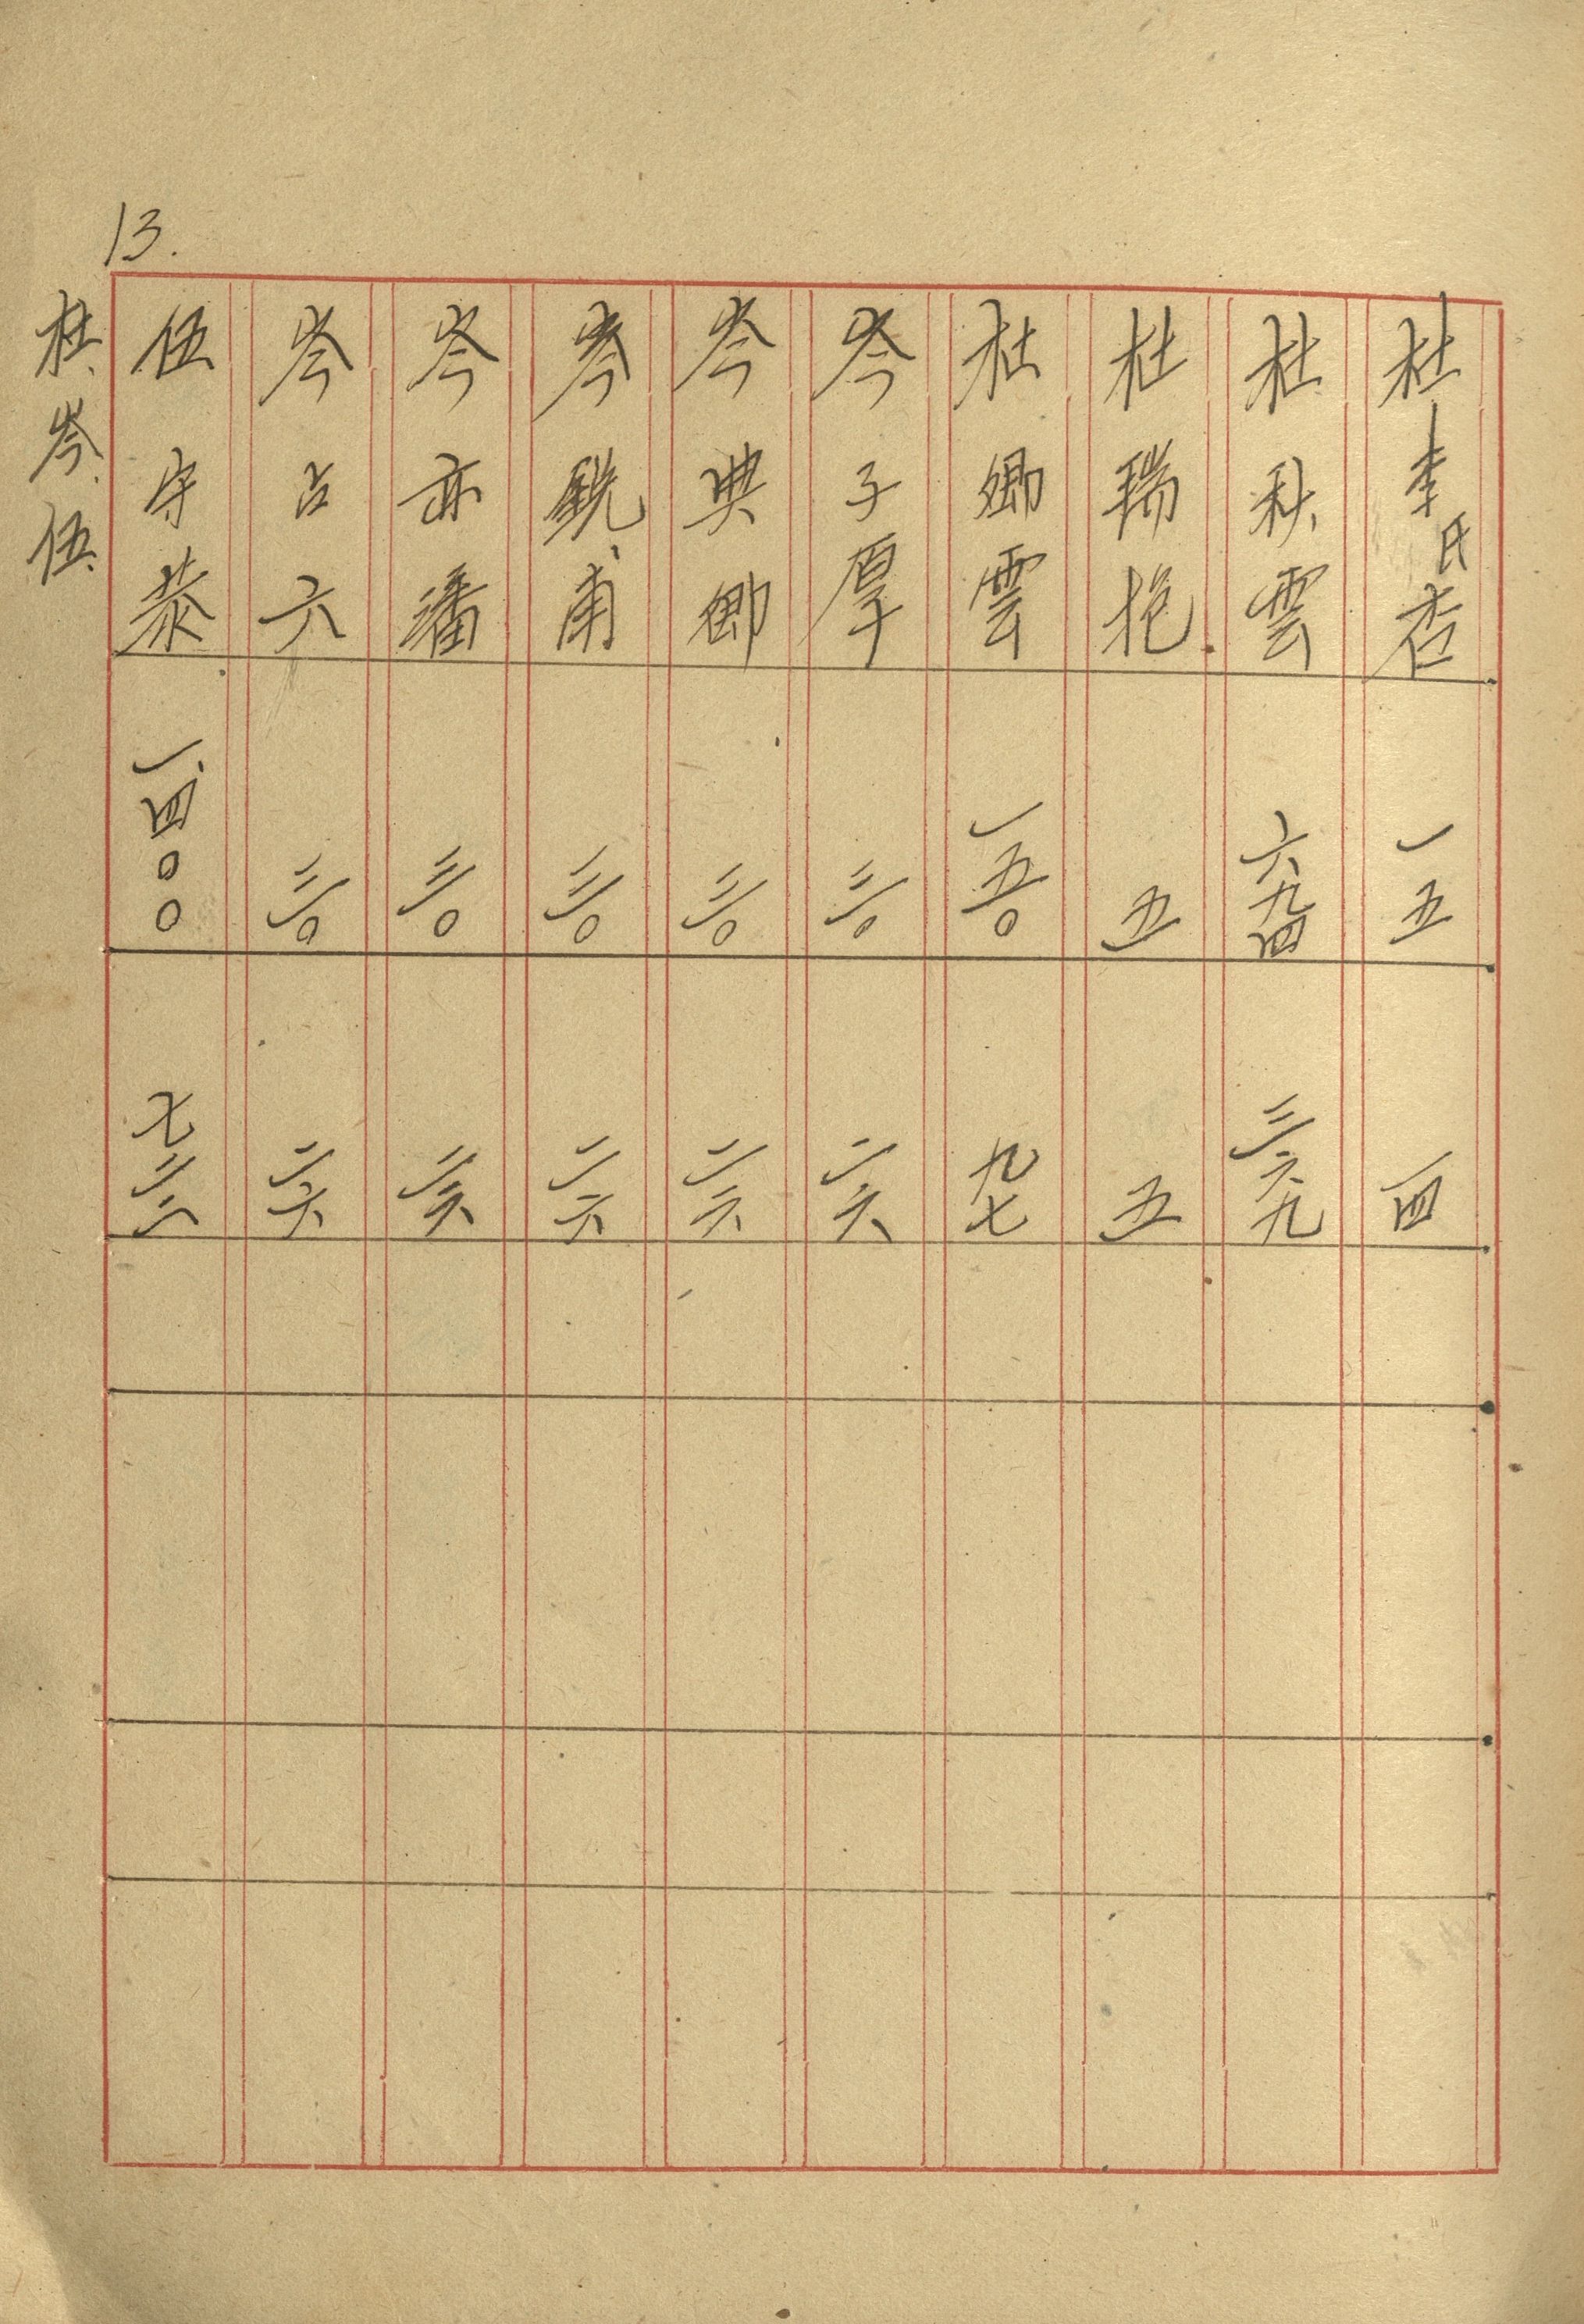 13.
杜李氏杏 一五 一四
杜秋雲 六九四 三六九
杜瑞挹 五 五
杜卿雲 一五〇 九七
岑子厚 三〇 二六
岑典卿 三〇 二六
岑銑甫 三〇 二六
岑亦潘 三〇 二六
岑占六 三〇 二六
伍守恭 一、四〇〇 七三二
杜、岑、伍、